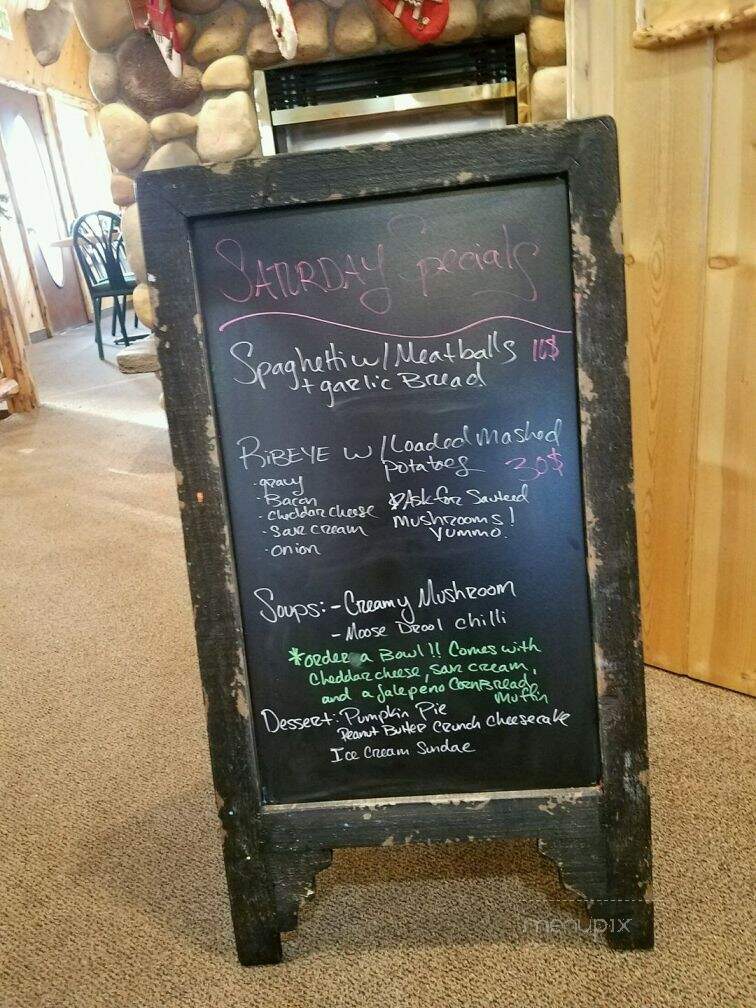 SATURDAY Specials
Spaghetti w/Meatballs
+ garlic Bread
RiBEYE w/Loaded mashed
potatoes 30$
· gravy
· Bacon
· cheddar cheese
· sour cream
· onion
*Ask for Sauteed
Mushrooms!
Yummo.
Soups: - Creamy Mushroom
- Moose Drool chilli
*order a Bowl!! Comes with
cheddar cheese, sour cream,
and a jalepeno CornBread
Muffin
Dessert: Pumpkin Pie
Peanut Butter Crunch cheesecake
Ice Cream Sundae
menupix